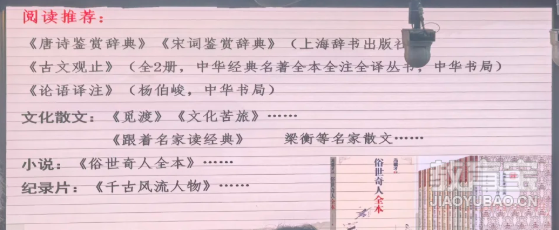 阅读推荐：
《唐诗鉴赏辞典》《宋词鉴赏辞典》（上海辞书出版社
《古文观止》（全2册，中华经典名著全本全注全译丛书，中华书局）
《论语译注》（杨伯峻，中华书局）
文化散文：《觅渡》《文化苦旅》……
《跟着名家读经典》 梁衡等名家散文……
小说：《俗世奇人全本》……
纪录片：《千古风流人物》……
俗世奇人全本
教育宝
JIAOYUBAO.CN